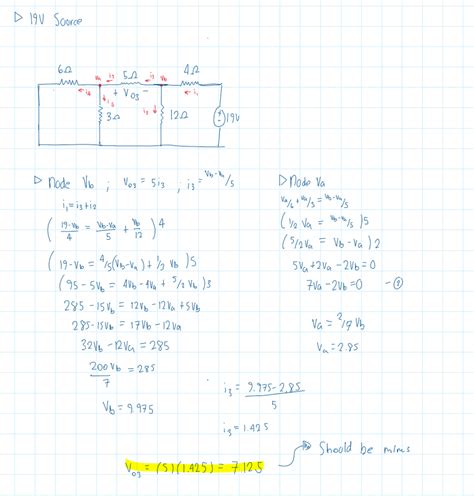 ▷ 19V Source
6Ω Va i3 5Ω i3 Vb 4Ω
+ V03 −
3Ω 12Ω 19V
▷ Node Vb ; V03 = 5i3 , i3 = Vb-Va/5
i1 = i3+i2
( 19-Vb/4 = Vb-Va/5 + Vb/12 ) 4
( 19-Vb = 4/5(Vb-Va) + 1/2 Vb ) 5
( 95-5Vb = 4Vb-4Va + 5/2 Vb ) 3
285-15Vb = 12Vb-12Va+5Vb
285-15Vb = 17Vb-12Va
32Vb-12Va = 285
200/7 Vb = 285
Vb = 9.975
▷ Node Va
Va/6 + Va/3 = Vb-Va/5
( 1/2 Va = Vb-Va/5 ) 5
( 5/2 Va = Vb-Va ) 2
5Va+2Va-2Vb=0
7Va-2Vb=0 - ①
Va = 2/7 Vb
Va = 2.85
i3 = 9.975-2.85/5
i3 = 1.425
V03 = (5)(1.425) = 7.125
Should be minus